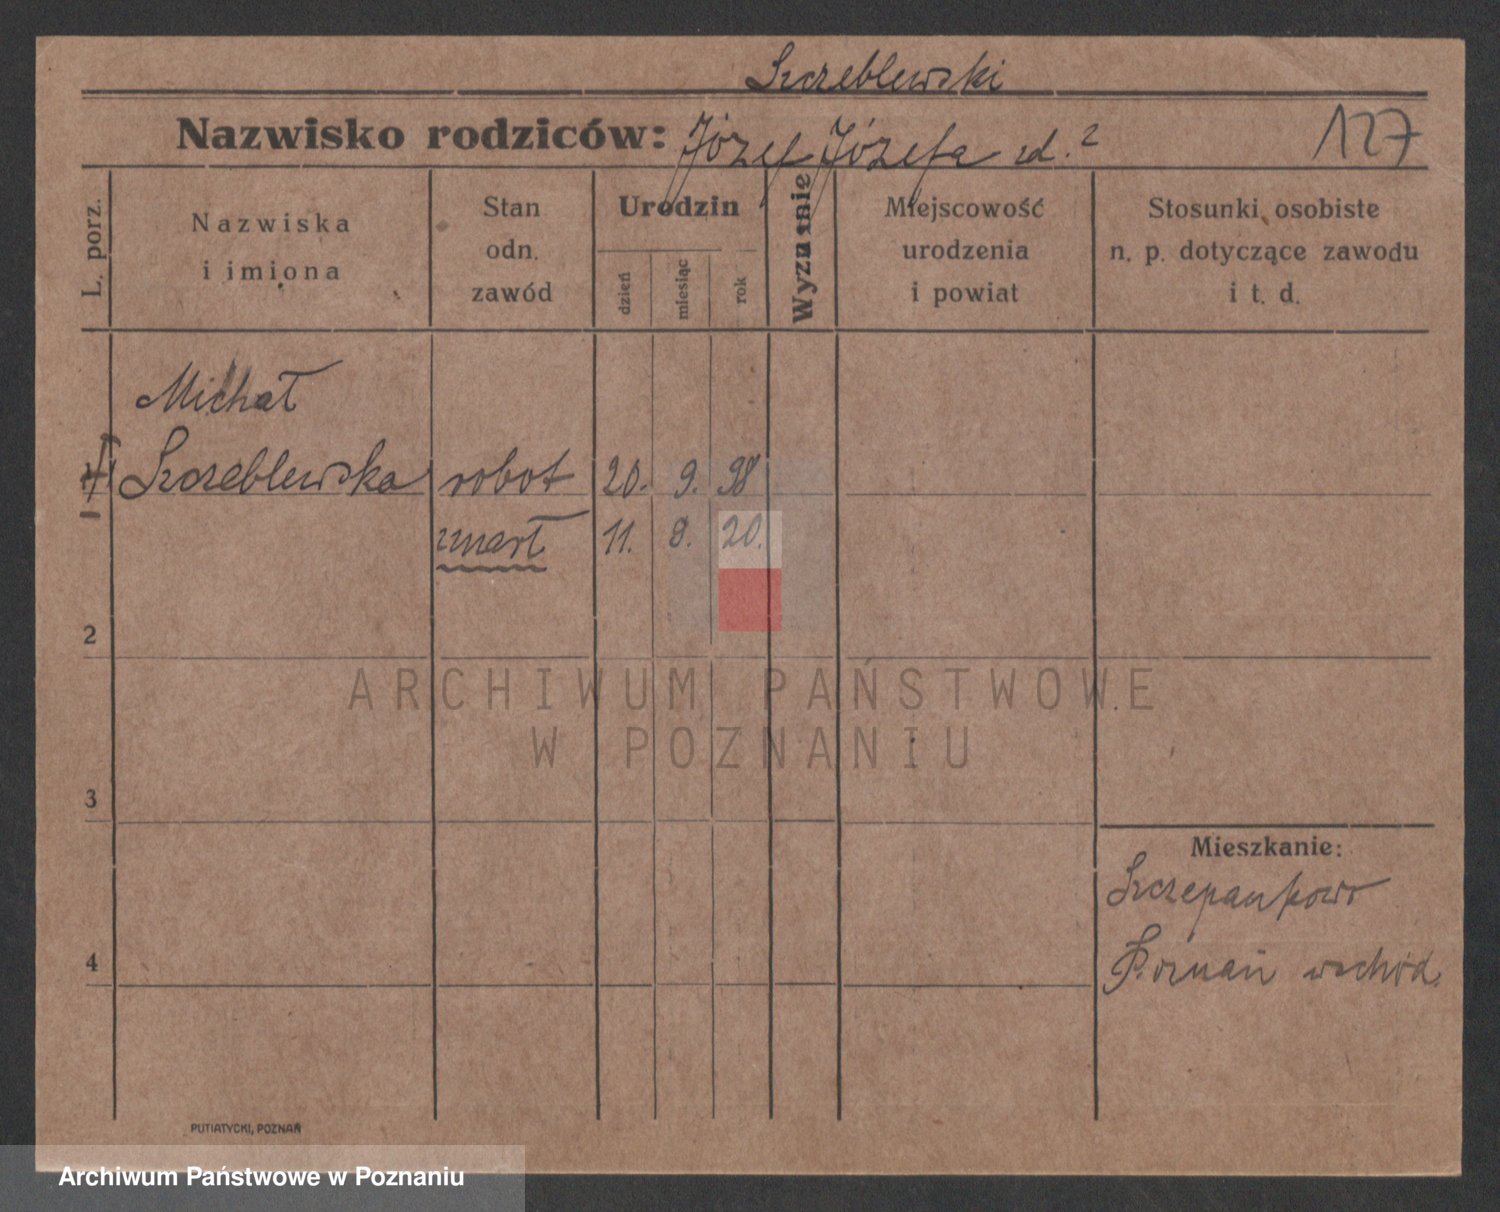 Szczeblewski
Nazwisko rodziców: Józef Józefa zd. 2
127
L. porz.
Nazwiska
i imiona
Stan
odn.
zawód
Urodzin
dzień
miesiąc
rok
Wyznanie
Miejscowość
urodzenia
i powiat
Stosunki osobiste
n. p. dotyczące zawodu
i t. d.
Michał
Szczeblewska robot 20. 9. 98
zmarł 11. 8. 20.
2
ARCHIWUM PAŃSTWOWE
W POZNANIU
3
Mieszkanie:
Szczepankowo
4
Poznań wschód.
PUTIATYCKI, POZNAŃ
Archiwum Państwowe w Poznaniu